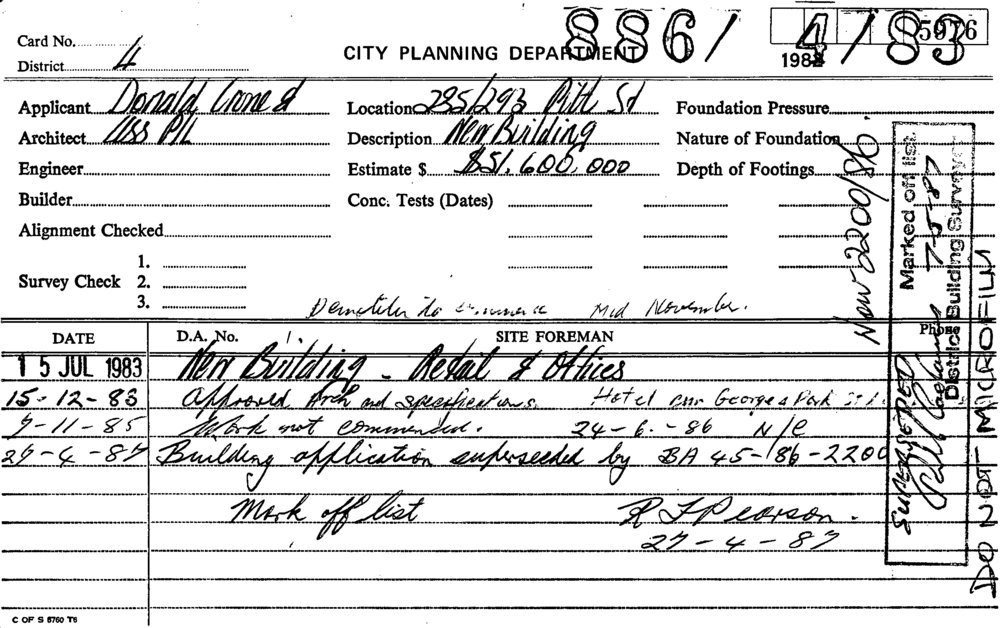 8861 4/83
5976
Card No.
CITY PLANNING DEPARTMENT
198
District 4
Applicant Donald Crone &
Location 285/293 Pitt St
Foundation Pressure
Architect Ass P/L
Description New Building
Nature of Foundation
Engineer
Estimate $ $51,600,000
Depth of Footings
Builder
Conc. Tests (Dates)
Alignment Checked
Survey Check
1.
2.
3.
to commence Mid November.
Now 2200/86.
DATE
D.A. No.
SITE FOREMAN
Phone
15 JUL 1983
New Building - Retail & Offices
15-12-83
Approved Arch and specifications. Hotel cnr George & Park
7-11-85
Work not commenced. 24-6.-86 N/C
27-4-87
Building application superseeded by BA 45-86-2200
Mark off list
R F Pearson.
27-4-87
SUPERSEDED
Marked off list
7-5-87
District Building Surveyor
DO NOT MICROFILM
C OF S 5760 T6